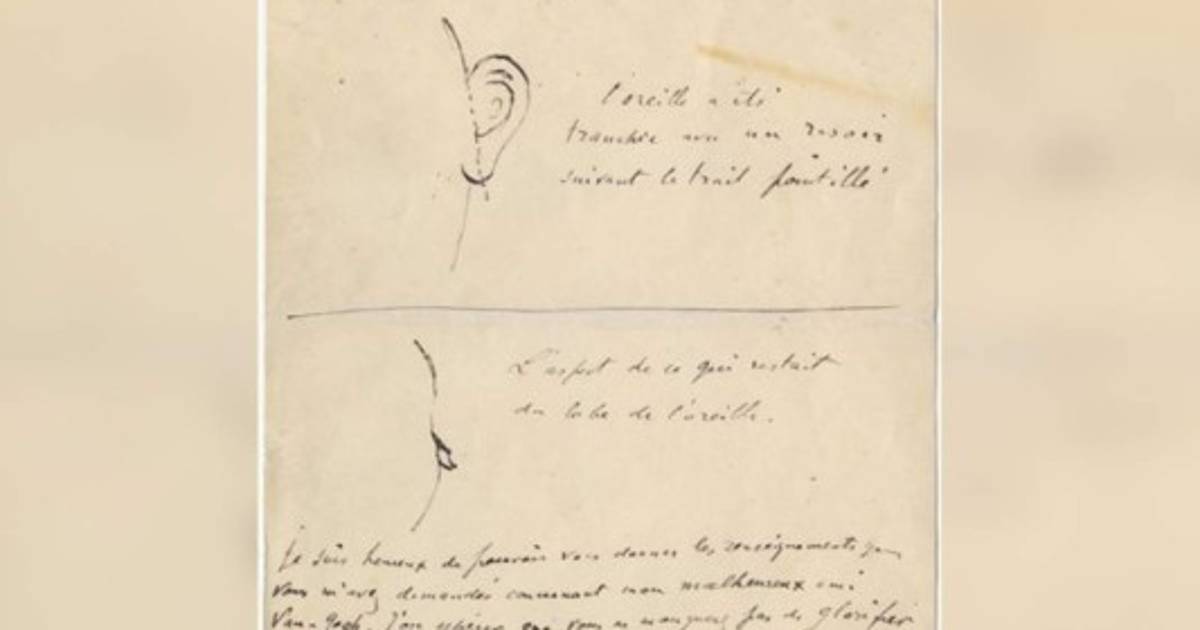 l'oreille a été
tranchée avec un rasoir
suivant le trait pointillé
L'aspect de ce qui restait
du lobe de l'oreille.
Je suis heureux de pouvoir vous donner les renseignements que
vous m'avez demandés concernant mon malheureux ami
Van-Gogh. J'ose espérer que vous ne manquerez pas de glorifier